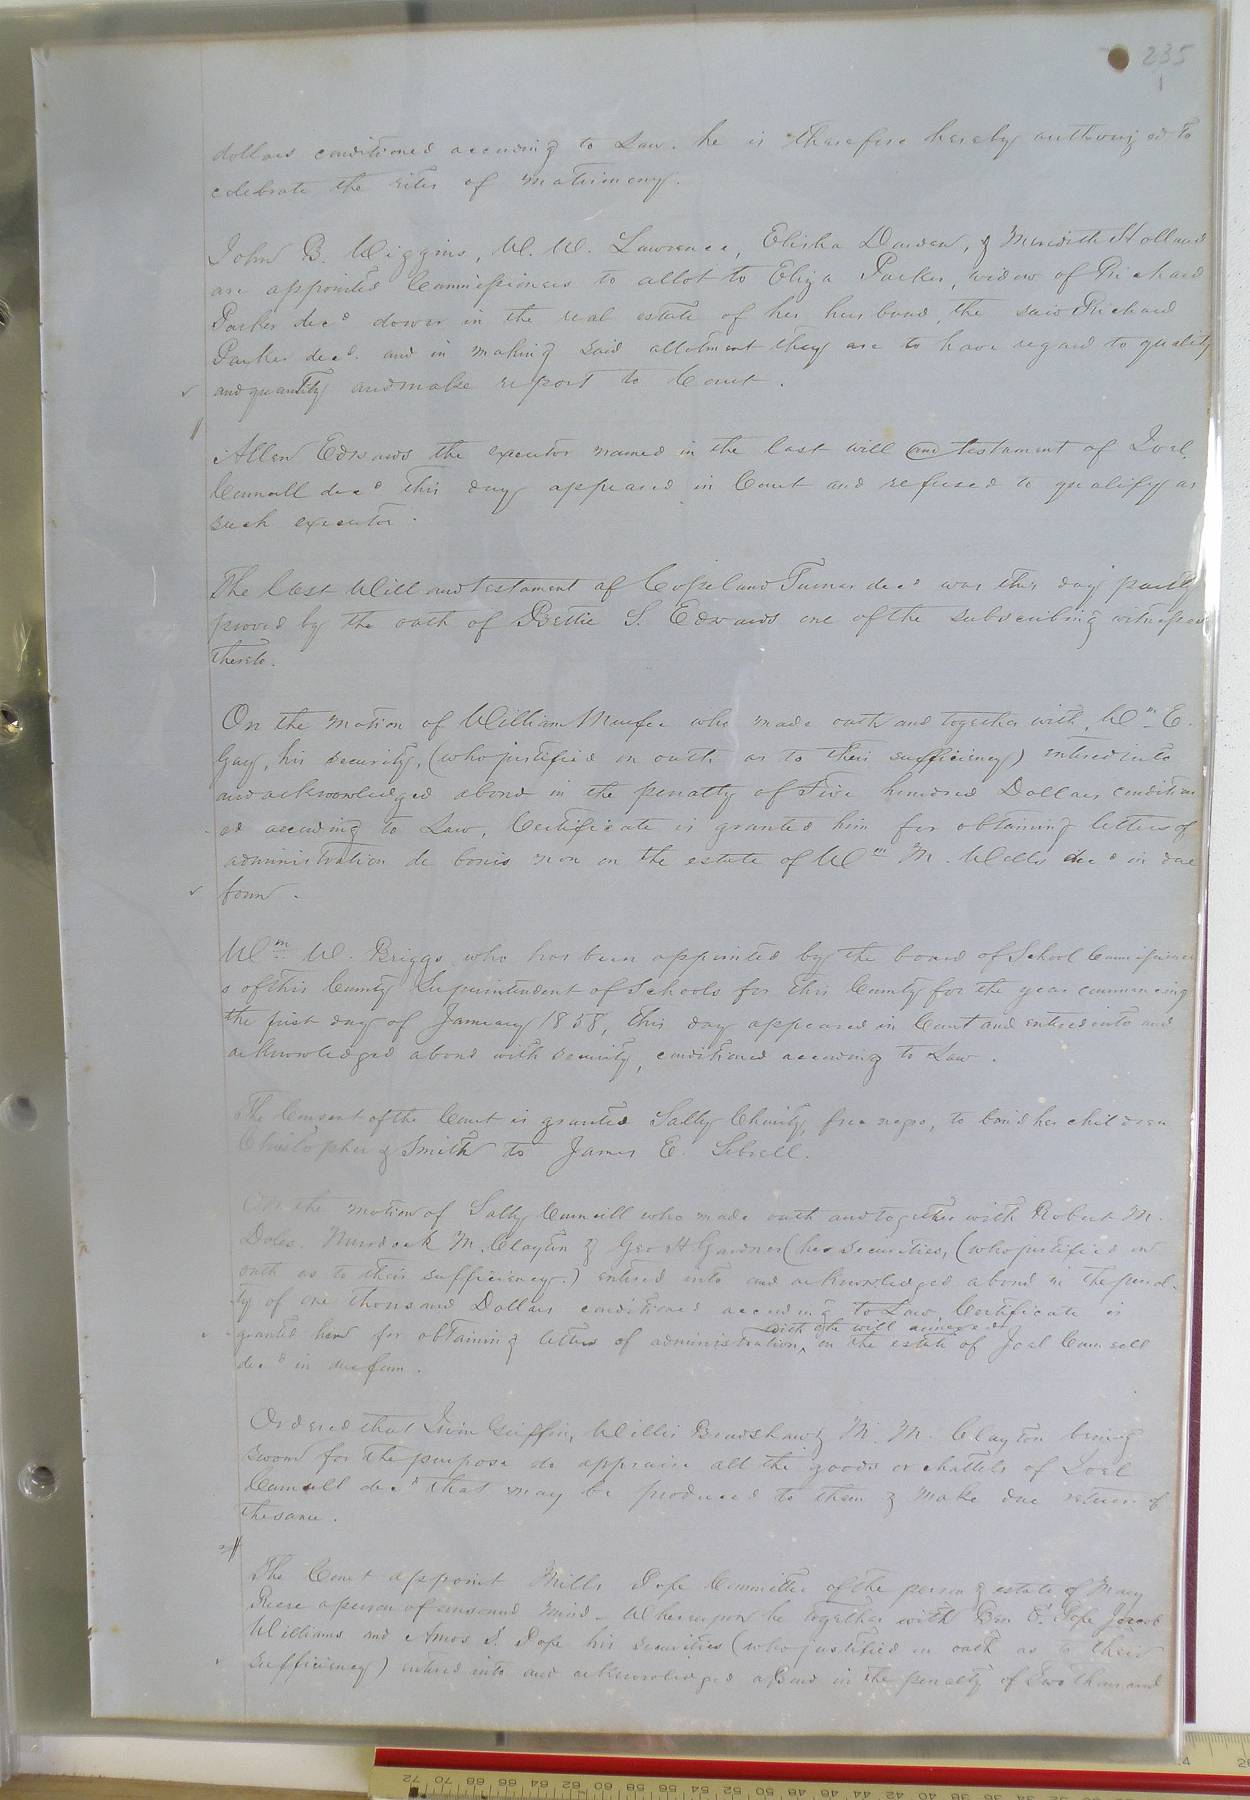 235
1
dollars conditioned according to Law. he is therefore hereby authorized to
celebrate the rites of matrimony.
John B. Wiggins, W. W. Lawrence, Elisha Darden, & Meredith Holland
are appointed Commissioners to allot to Eliza Parker, widow of Richard
Parker decd dower in the real estate of her husband, the said Richard
Parker decd. and in making said allotment they are to have regard to quality
and quantity and make report to Court.
Allen Edwards the executor named in the last will and testament of Joel
Councill decd this day appeared in Court and refused to qualify as
such executor.
The last Will and testament of Copeland Turner decd was this day partly
proved by the oath of Bettie S. Edwards one of the subscribing witnesses
thereto.
On the motion of William Murfee who made oath and together with Wm E.
Gay, his security, (who justified on oath as to their sufficiency) entered into
and acknowledged a bond in the penalty of Five hundred Dollars condition
ed according to Law, Certificate is granted him for obtaining letters of
administration de bonis non on the estate of Wm M. Wells decd in due
form.
Wm W. Briggs who has been appointed by the board of School Commissioner
s of this County Superintendent of Schools for this County for the year commencing
the first day of January 1858, this day appeared in Court and entered into and
acknowledged a bond with security, conditioned according to Law.
The Consent of the Court is granted Sally Charity, free negro, to bind her children
Christopher & Smith to James E. Sebrell.
On the motion of Sally Councill who made oath and together with Robert M.
Doles, Murdock M. Clayton & Geo H Gardner (her securities, (who justified on
oath as to their sufficiency.) entered into and acknowledged a bond in the penal-
ty of one thousand Dollars conditioned according to Law, Certificate is
granted her for obtaining letters of administration, with the will annexed on the estate of Joel Councill
decd in due form.
Ordered that Irvin Griffin, Willis Bradshaw & M. M. Clayton being
sworn for the purpose do appraise all the goods or chattels of Joel
Councill decd that may be produced to them & make due return of
the same.
The Court appoint Mills Pope Committee of the person & estate of Mary
a person of unsound mind - Whereupon he together with E. Pope Jacob
Williams and Amos S. Pope his securities (who justified on oath as to their
sufficiency) entered into and acknowledged a Bond in the penalty of Two thousand
72 70 68 66 64 62 60 58 56 54 52 50 48 46 44 42 40 38 36 34 32 30